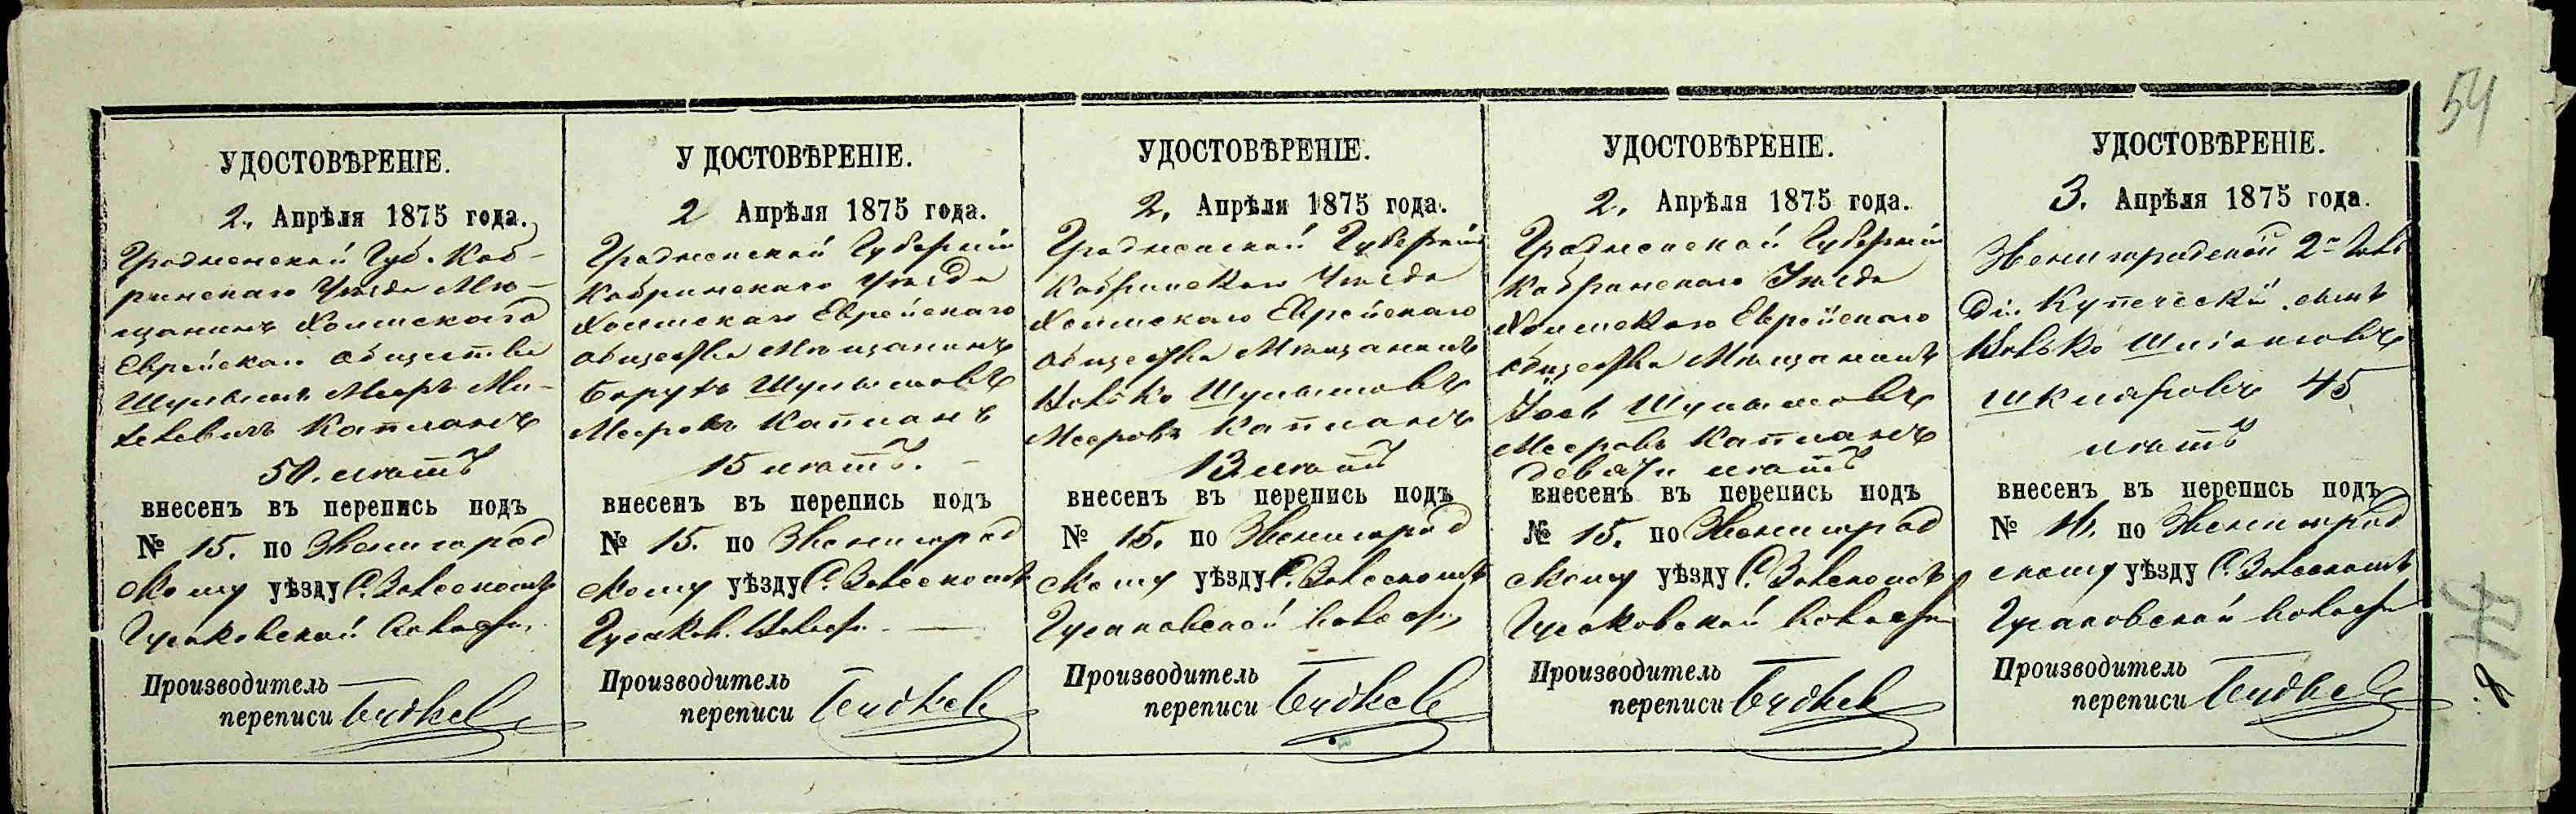 54
УДОСТОВѢРЕНІЕ.
2. Апрѣля 1875 года.
Гродненской Губ. Коб-
ринскаго Уѣзда Мѣ-
щанинъ Хомскаго
Еврейскаго общества
Шулимъ Мееръ
Каппланъ
50. лѣтъ
внесенъ въ перепись подъ
№ 15. по Звенигород
скому уѣзду С.
Гусаковской Волости
Производитель
переписи
У ДОСТОВѢРЕНІЕ.
2 Апрѣля 1875 года.
Гродненской Губерніи
Кобринскаго Уѣзда
Хомскаго Еврейскаго
общества Мѣщанинъ
Борухъ Шулимовъ
Мееровъ Каппланъ
15 лѣтъ.
внесенъ въ перепись подъ
№ 15. по Звенигород
скому уѣзду С.
Гусаков. Волост.
Производитель
переписи
УДОСТОВѢРЕНІЕ.
2. Апрѣля 1875 года.
Гродненской Губерніи
Кобринскаго Уѣзда
Хомскаго Еврейскаго
общества Мѣщанинъ
Шулимовъ
Мееровъ Каппланъ
13 лѣтъ
внесенъ въ перепись подъ
№ 15. по Звенигород
скому уѣзду С.
Гусаковской Волости
Производитель
переписи
УДОСТОВѢРЕНІЕ.
2. Апрѣля 1875 года.
Гродненской Губерніи
Кобринскаго Уѣзда
Хомскаго Еврейскаго
общества Мѣщанинъ
Шулимовъ
Мееровъ Каппланъ
девяти лѣтъ
внесенъ въ перепись подъ
№ 15. по Звенигород
скому уѣзду С.
Гусаковской Волости
Производитель
переписи
УДОСТОВѢРЕНІЕ.
3. Апрѣля 1875 года.
Звенигородской 2й Гиль
діи Купеческій сынъ
Шкляровъ 45
лѣтъ
внесенъ въ перепись подъ
№ 16. по Звенигород
скому уѣзду С.
Гусаковской Волости
Производитель
переписи